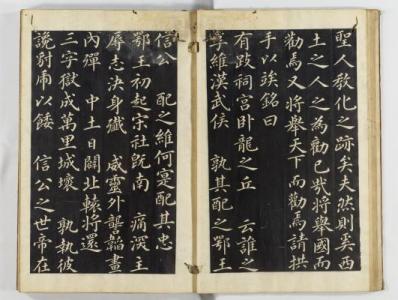 聖人教化之跡矣夫然則奚西
土之人之為勸已哉將舉國而
勸焉又將舉天下而勸焉請拱
手以矦銘曰
有跂祠宮卧龍之丘 云誰之
維漢武侯 孰其配之鄂王
信公 配之維何寔配其忠
鄂王初起宋社旣南 痛深主
辱志決身殲 威靈外讋韜畫
內殫 中土日闢北轅將還
三字獄成萬里城壞 孰執彼
讒豺虎以餧 信公之世帝在